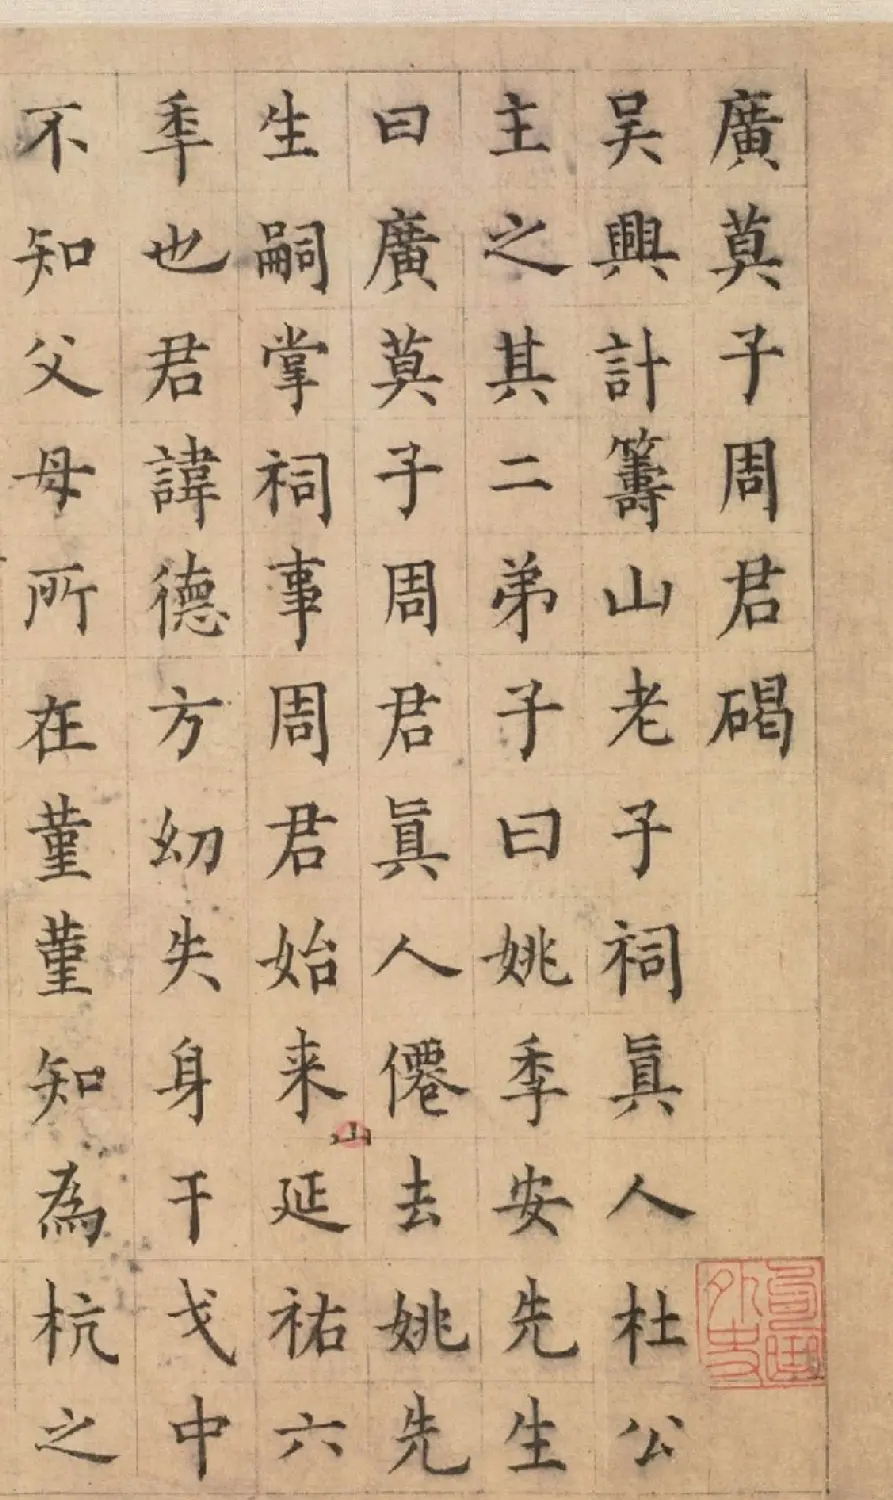 廣莫子周君碣
吴興計籌山老子祠眞人杜公
主之其二弟子曰姚季安先生
曰廣莫子周君眞人僊去姚先
生嗣掌祠事周君始来山延祐六
秊也君諱德方幼失身干戈中
不知父母所在菫菫知為杭之
句曲外史